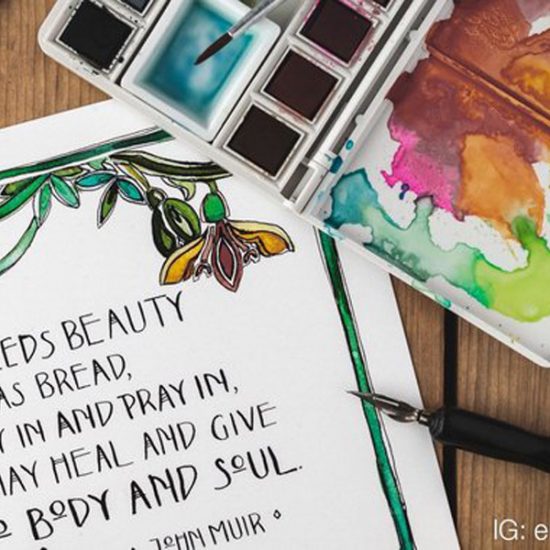 EEDS BEAUTY
AS BREAD,
Y IN AND PRAY IN,
MAY HEAL AND GIVE
O BODY AND SOUL.
JOHN MUIR
IG: e